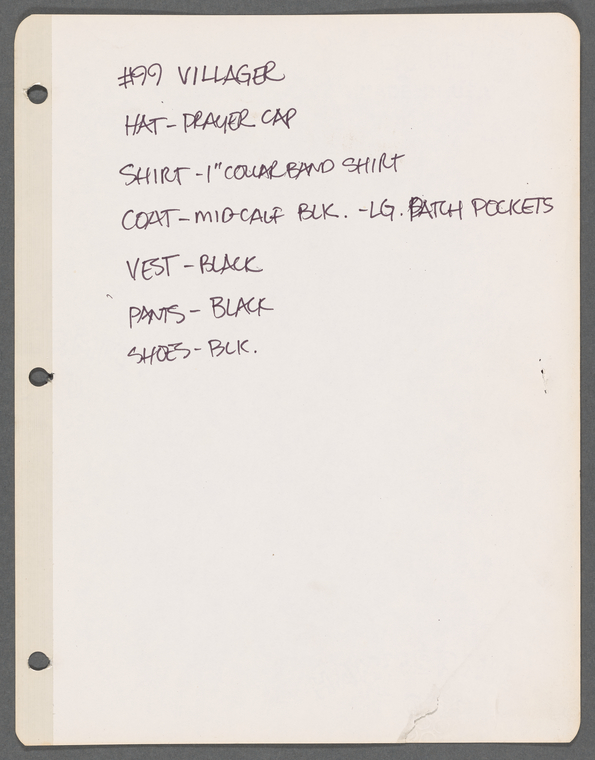 #99 VILLAGER
HAT - PRAYER CAP
SHIRT - 1" COLLARBAND SHIRT
COAT - MID-CALF BLK. - LG. PATCH POCKETS
VEST - BLACK
PANTS - BLACK
SHOES - BLK.